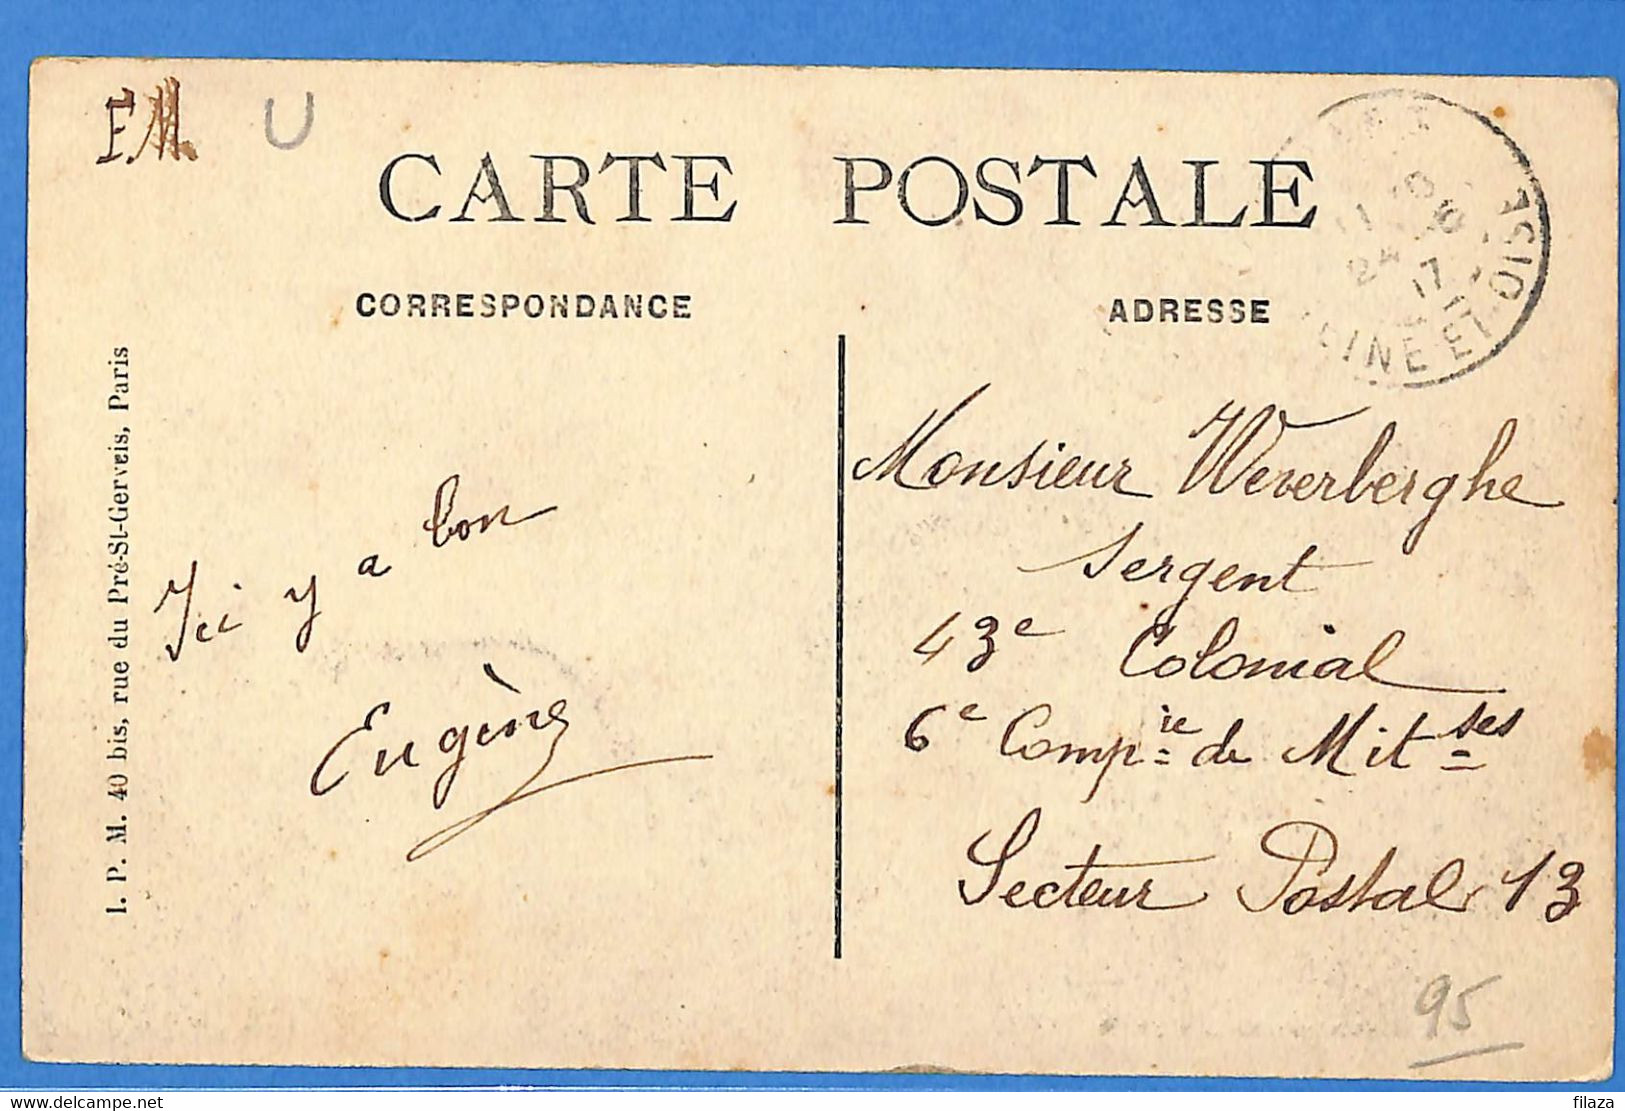 F.M.
U
CARTE POSTALE
CORRESPONDANCE
ADRESSE
11 10
24 - 6
17
SEINE-ET-OISE
I. P. M. 40 bis, rue du Pré-St-Gervais, Paris
Ici y a bon
Eugène
Monsieur Weverberghe
Sergent
43e Colonial
6e Compie de Mitses
Secteur Postal 13
95
www.delcampe.net
filaza